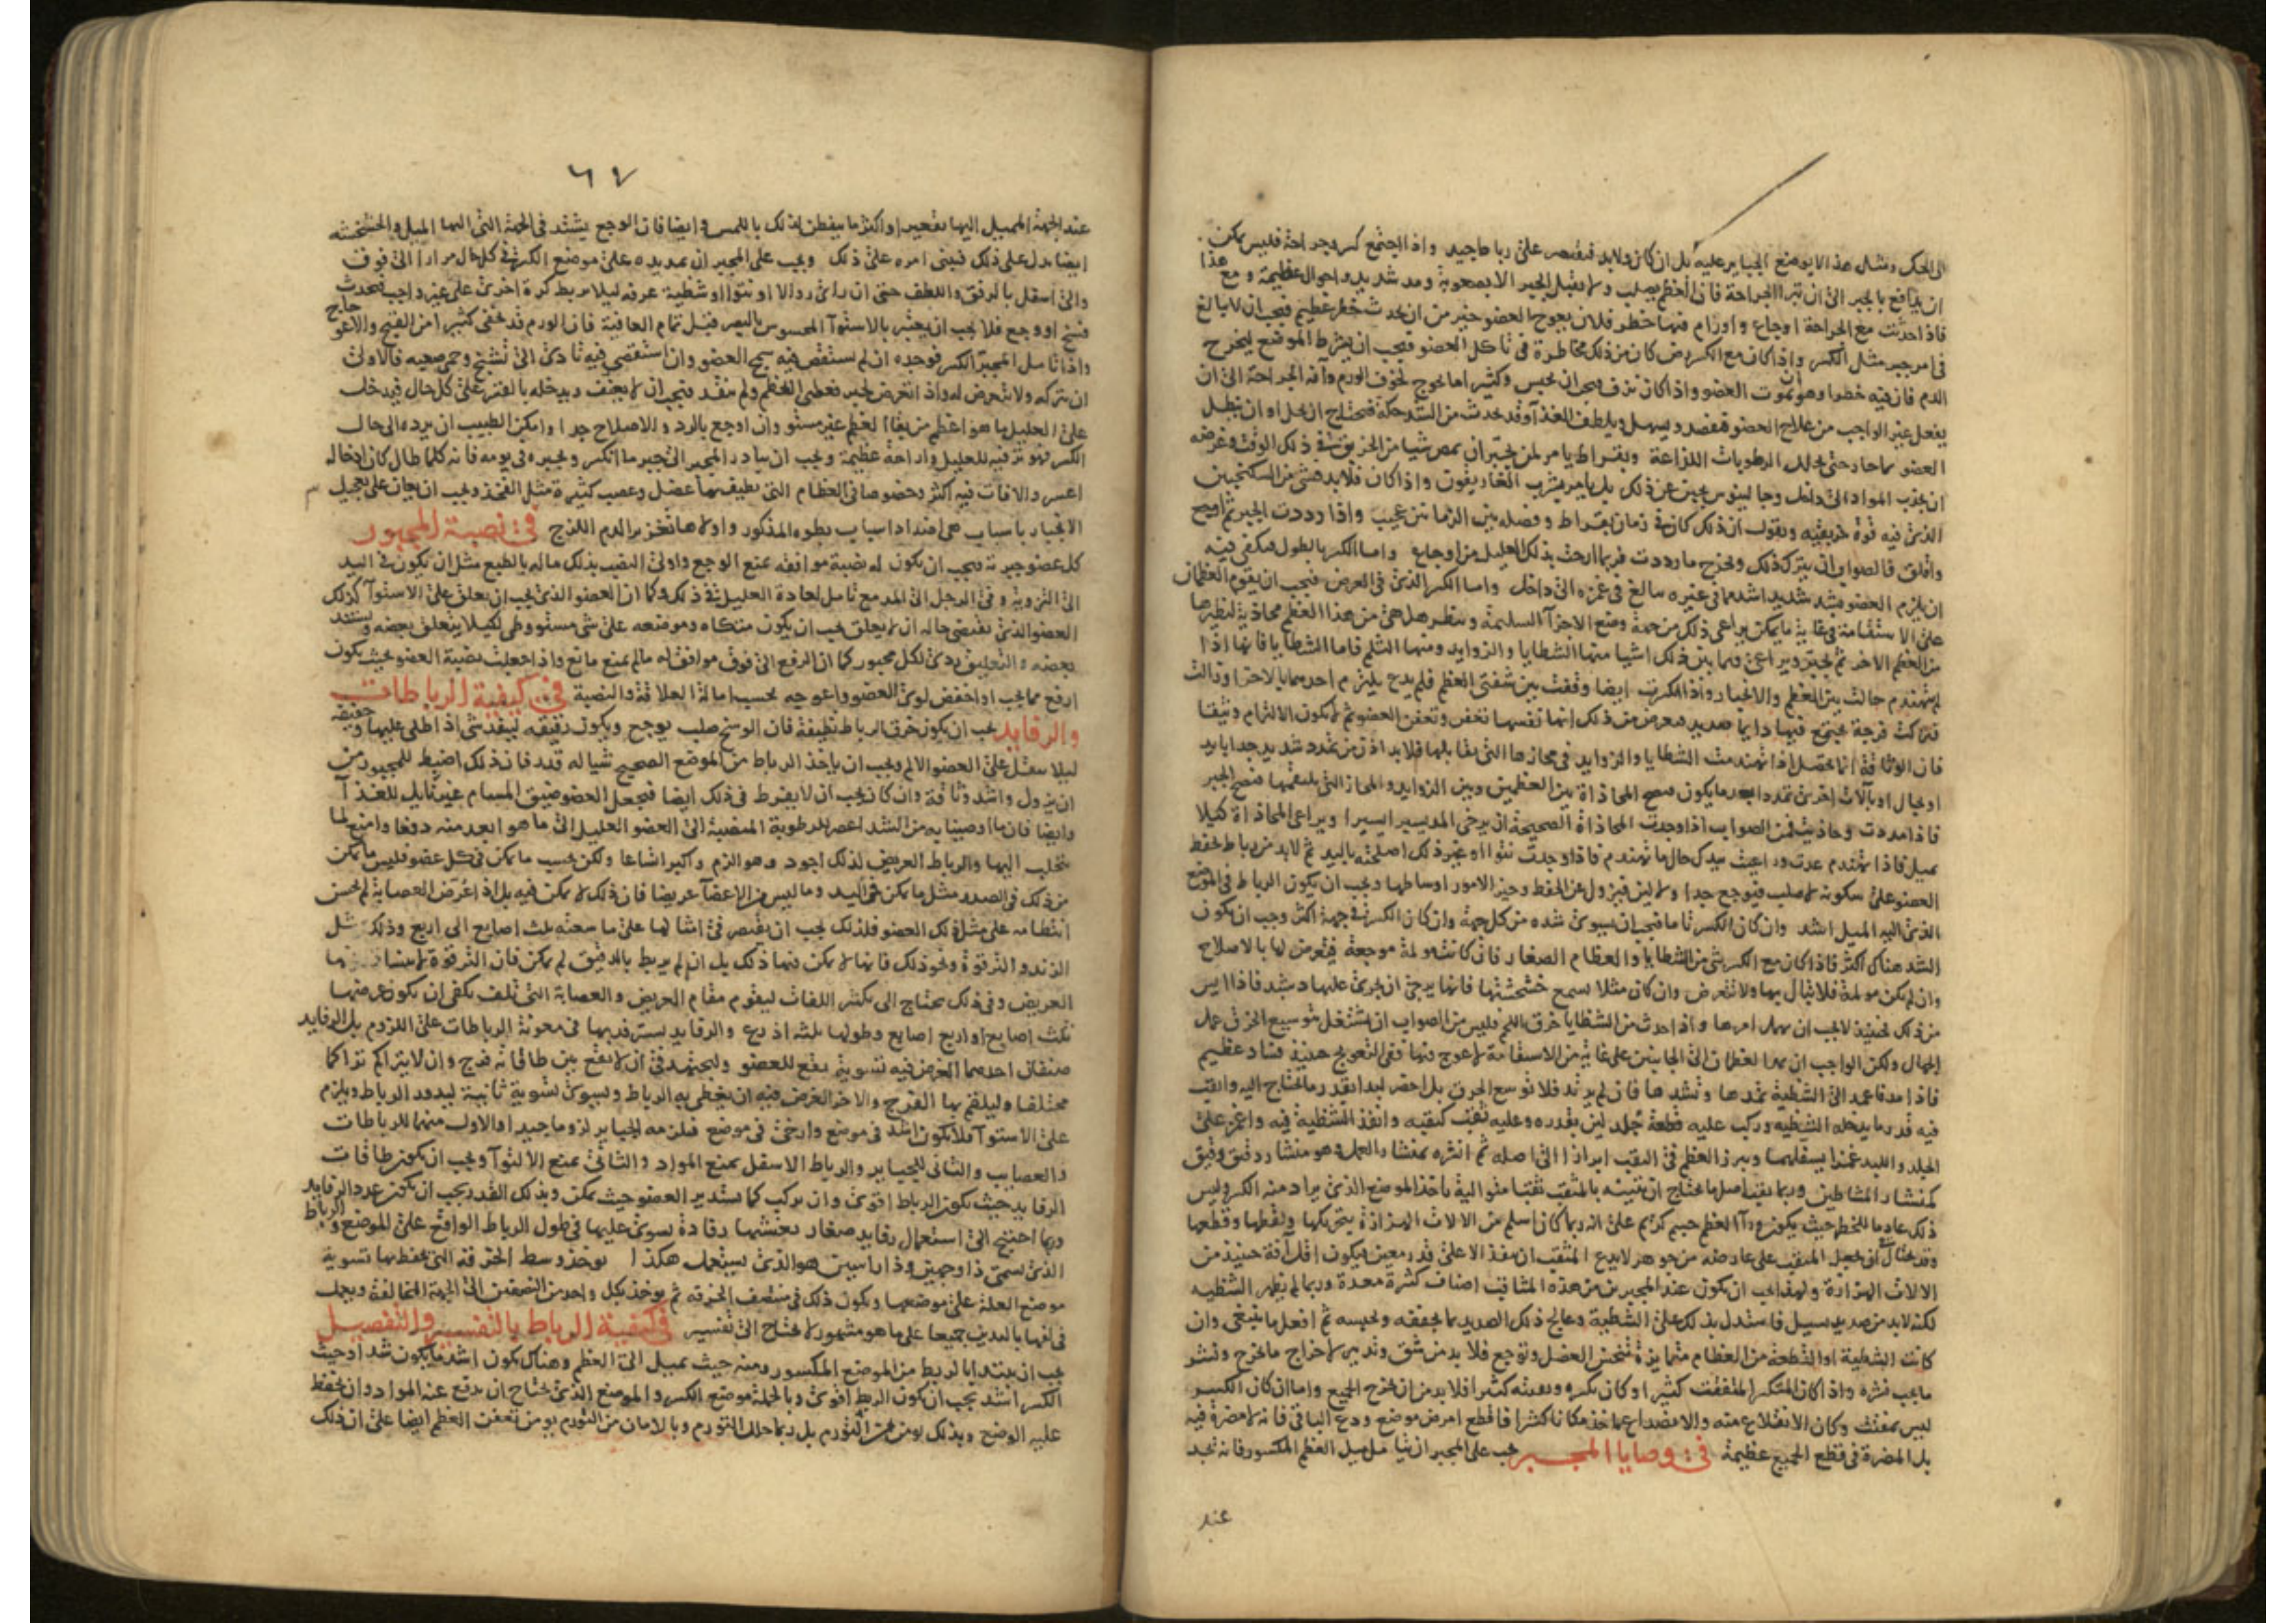 الى الحك ومثل هذا لا يوضع الجباير عليه بل ان كان ولابد فيقتصر على رباط جيد واذا اجتمع كسر وجراحة فليس يمكن
ان يدافع بالجبر الى ان تبرا الجراحة فان العظم يصلب ولا يقبل الجبر الا بصعوبة ومد شديد واحوال عظيمة ومع هذا
فاذا حدثت مع الجراحة اوجاع واورام فيها خطر فلان يعوج العضو خير من ان يحدث خطر عظيم فيجب ان لا يبالغ
في امر جبر مثل الكسر واذا كان مع الكسر رض كان من ذلك مخاطرة في تاكل العضو فيجب ان يشرط الموضع ليخرج
الدم فان فيه خطرا وهو ان يموت العضو واذا كان نزف فيجب ان يحبس وكثيرا ما يحوج لخوف الورم وآفة الجراحة الى ان
يفعل غير الواجب من علاج العضو فيفصد ويسهل ويلطف الغذآ وقد يحدث من الشد حكة فيحتاج ان يحل او ان ينطل
العضو بماحار حتى يحلل الرطوبات اللذاعة وبقراط يامر لمن يجبر ان يمص شيا من الخربق في ذلك الوقت وغرضه
ان يجذب المواد الى داخل وجالينوس يجبن عن ذلك بل يامر بشرب الغاريقون واذا كان فلابد فشي من السكنجبين
الذي فيه قوة خربقية ويقول ان ذلك كان في زمان بقراط وفصله بين الزمانين عجيب واذا رددت الجبر ثم اوجع
واقلق فالصواب ان يترك ذلك وتخرج ما رددت فربما ارحت بذلك العليل من اوجاع واما الكسر بالطول فيكفي فيه
ان يلزم العضو بشد شديد اشد مما في غيره يبالغ في غمزه الى داخل واما الكسر الذي في العرض فيجب ان يقوم العظمان
على الاستقامة في غاية ما يمكن يراعي ذلك من جهة وضع الاجزآ السليمة وينظر هل هي من هذا العظم محاذية لنظيرها
من العظم الاخر ثم يجبر ويراعى فيما بين ذلك اشيا منها الشظايا والزوايد ومنها الثلم فاما الشظايا فانها اذا
لم تهندم حالت بين العظم والانجبار واذا انكسرت ايضا وقفت بين شفتي العظم فلم يدع يلزم احدهما بالاخر او زالت
فتركت فرجة يجتمع فيها دايما صديد من ذلك انها نفسها تعفن وتعفن العضو ثم لا يكون الالتزام وثيقا
فان الوثاقة انما تحصل اذا تهندمت الشظايا والزوايد في مجازها التي تقابلها فلابد اذن من تمدد شديد جدا باليد
او بحبال او بآلات اخرى تمدد ابعد ما يكون فيصح المحاذاة بين العظمين وبين الزوايد والمجاز التي يلتقمها فيصح الجبر
فاذا مددت وحاذيت فمن الصواب اذا وجدت المحاذاة الصحيحة ان يرخي المد يسيرا يسيرا ويراعى المحاذاة كيلا
تميل فاذا تهندم عدت وراعيت بيدك حال ما تهندم فاذا وجدت نتوا او غير ذلك اصلحته باليد ثم لابد من رباط يحفظ
العضو على سكونه لا صلب فيوجع جدا ولا لين فيزول عن الحفظ وخير الامور اوساطها ويجب ان يكون الرباط في الموضع
الذي اليه الميل اشد وان كان الكسر تاما فيجب ان يسوى شده من كل جهة وان كان الكسر في جهة اكثر وجب ان يكون
الشد هناك اكثر فاذا كان مع الكسر شي من الشظايا والعظام الصغار فان كانت مولمة موجعة فتعرض لها بالاصلاح
وان لم يكن مولمة فلا تبال بها ولا تتعرض وان كان مثلا يسمع خشخشتها فانها يرجى ان يجري عليها دشبد فاذا ايس
من ذلك فحينيذ لا يجب ان يهمل امرها واذا حدث من الشظايا خرق اللحم فليس من الصواب ان تشتغل بتوسيع الخرق عمل
الجهال ولكن الواجب ان يمد العظمان الى الجانبين على غاية من الاستقامة لا عوج فيها ففي التعويج حينيذ فساد عظيم
فاذا مد فاعمد الى الشظية تمدها وتشدها فان لم يرتد فلا توسع الخرق بل احضر لبدا بقدر ما يحتاج اليه واثقب
فيه قدر ما يدخله الشظيه وركب عليه قطعة جلد لين بقدره وعليه ثقب كثقبه وانفذ الشظية فيه واغمز على
الجلد واللبد غمزا يسفلهما ويبرز العظم في الثقب ابرازا الى اصله ثم انشره بمنشار العمل وهو منشار رقيق
كمنشار المشاطين وربما ثقب اصل ما يحتاج ان تبينه بالمثقب ثقبا متواليا ياخذ الموضع الذي يراد منه الكسر وليس
ذلك عاد ما للخطر حيث يكون ورآ العظم جسم كريم على انه ربما كان اسلم من الالات الهزازة بتحريكها وقطعها
وقد يحتال في ان يجعل المثقب على عارضة من جوهر لا يدع المثقب ان ينفذ الا على قدر معين فيكون اقل آفة حينيذ من
الالات الهزازة ولهذا يجب ان يكون عند المجبرين من هذه المثاقب اصناف كثيرة معدة وربما لم يظهر الشظيه
لكنه لابد من صديد يسيل فاستدل بذلك على الشظية وعالج ذلك الصديد بما يجففه ويحبسه ثم افعل ما ينبغي وان
كانت الشظية او القطعة من العظام متمايزة تنخس العضل وتوجع فلابد من شق وتدبير لاخراج ما يخرج ونشر
ما يجب نشره واذا كان المتكسر المتفتت كثيرا وكان تكره وتعبثه كثيرا فلابد من ان تخرج الجميع واما ان كان الكسر
ليس بمفتت وكان الانقلاع عنه والانصداع عما اخذ مكانا كثيرا فاقطع امرض موضع ودع الباقي فانه لا مضرة فيه
بل المضرة في قطع الجميع عظيمة في وصايا المجبر يجب على المجبر ان يتامل ميل العظم المكسور فانه يجد
عند
٦٧
عند الجهة المميل اليها تقعيرا واكثر ما يفطن لذلك باللمس وايضا فان الوجع يشتد في الجهة التي اليها الميل والخشخشة
ايضا يدل على ذلك فيبنى امره على ذلك ويجب على المجبر ان يمد يده على موضع الكسر في كل حال مرارا الى فوق
والى اسفل بالرفق واللطف حتى ان راى زوالا او نتوا او شظية عرفه ليلا يربط كرة اخرى على غير واجب فيحدث
فسخ او وجع فلا يجب ان يغتر بالاستوآ المحسوس بالبصر قبل تمام العافية فان الورم قد يخفي كثيرا من القبح والاعوجاج
واذا تامل المجبر الكسر فوجده ان لم يستقص فيه سمج العضو وان استقصى فيه تادى الى تشنج وحمى صعبة فالاولى
ان يتركه ولا يتعرض له واذا تعرض لجبر فعصى العظم ولم ينقد فيجب ان لا يعنف ويدخله بالقسر على كل حال فيدخل
على العليل ما هو اعظم من بقآ العظم غير مستو وان اوجع بالرد والاصلاح جدا وامكن الطبيب ان يرده الى حال
الكسر فهو ترفيه للعليل واراحة عظيمة ويجب ان يبادر المجبر الى جبر ما انكسر ويجبره في يومه فانه كلما طال كان ادخاله
اعسر والافات فيه اكثر وخصوصا في العظام التي يطيف بها عضل وعصب كثيرة مثل الفخذ ويجب ان يعان على تعجيل
الانجبار باسباب هي اضداد اسباب بطوه المذكور واولاها تغزير الدم اللزج في نصبة المجبور
كل عضو جبرته فيجب ان يكون له نصبة موافقة تمنع الوجع واولى النصب بذلك ماله بالطبع مثل ان يكون في اليد
الى التزوية وفي الرجل الى المد مع تامل لعادة العليل في ذلك وكما ان العضو الذي يجب ان يعلق على الاستوآ كذلك
العضو الذي يقتضي حاله ان لا يعلق يجب ان يكون متكاه وموضعه على شي مستو وطي لكيلا يتعلق بعضه ويستند
بعضه والتعليق ردى لكل مجبور كما ان الرفع الى فوق موافق له ما لم يمنع مانع واذا جعلت نصبة العضو بحيث يكون
ارفع مما يجب او اخفض لوى العضو واعوجه بحسب امالة العلاقة والنصبة في كيفية الرباطات
والرفايد يجب ان يكون خرق الرباط نظيفة فان الوسخ صلب يوجع ويكون رقيقه لينفذ شي اذا طلى عليها وخفيفة
ليلا يثقل على العضو الالم ويجب ان ياخذ الرباط من الموضع الصحيح شيا له قدر فان ذلك اضبط للمجبور من
ان يزول واشد وثاقة وان كان يجب ان لا يفرط في ذلك ايضا فيجعل العضو ضيق المسام غير قابل للغذآ
وايضا فان ما اوصينا به من الشد اعصر للرطوبة المنصبة الى العضو العليل الى ما هو ابعد منه دفعا وامنع لما
يتحلب اليها والرباط العريض لذلك اجود وهو الزم واكبر اشتمالا ولكن بحسب ما يمكن في كل عضو فليس ما يمكن
من ذلك في الصدر مثل ما يمكن في اليد وما ليس من الاعضآ عريضا فان ذلك لا يمكن فيه بل اذا عرض العصابة لم يحسن
انتظامه على مثل ذلك العضو فلذلك يجب ان يقتصر في امثالها على ما سعته ثلث اصابع الى اربع وذلك مثل
الزند والترقوة ونحو ذلك فانها لا يمكن فيها ذلك بل ان لم يربط بالدقيق لم يمكن فان الترقوة لا
العريض وفي ذلك يحتاج الى تكثير اللفات ليقوم مقام العريض والعصابة التي تلف يكفى ان يكون عرضها
ثلث اصابع او اربع اصابع وطولها ثلثه اذرع والرفايد يستر فد بها في معونة الرباطات على اللزوم بل الرفايد
صنفان احدهما الغرض فيه تسوية تقع للعضو وليجتهد في ان لا يقع بين طاقاته فرج وان لا يتراكم تراكما
مختلفا وليلقم بها الفرج والاخر الغرض فيه ان يغطى به الرباط ويسوى تسوية ثانية ليدور الرباط ويلزم
على الاستوآ فلا يكون اشد في موضع وارخى في موضع فيلزمه الجباير لزوما جيدا والاول منهما للرباطات
والعصايب والثاني للجباير والرباط الاسفل يمنع المواد والثاني يمنع الالتوآ ويجب ان يكون طاقات
الرفايد حيث يكون الرباط اقوى وان يركب كما يستدير العضو حيث يمكن وبذلك القدر يجب ان يكون عدد الرفايد
وربما احتيج الى استعمال رفايد صغار تغشيها رفادة يسوى عليها في طول الرباط الواقع على الموضع والرباط
الذي يسمى ذا وجهين وذا راسين هو الذي يستعمل هكذا يوخذ وسط الخرقة التي يحفظ بها تسوية
موضع العلة على موضعها ويكون ذلك في منتصف الخرقه ثم يوخذ بكل واحد من النصفين الى الجهة المخالفة ويعمل
في لفها باليدين جميعا على ما هو مشهور لا يحتاج الى تفسير في كيفية الرباط بالتفسير والتفصيل
يجب ان يبتدا بالربط من الموضع المكسور ومنه حيث يميل الى العظم وهناك يكون اشد ما يكون شدا وحيث
الكسر اشد يجب ان يكون الربط اقوى وبالجملة موضع الكسر والموضع الذي يحتاج ان يدفع عنه المواد وان يحفظ
عليه الوضع وبذلك يومن من التورم بل ربما حلل التورم وبالامان من التورم يومن تعفن العظم ايضا على ان ذلك